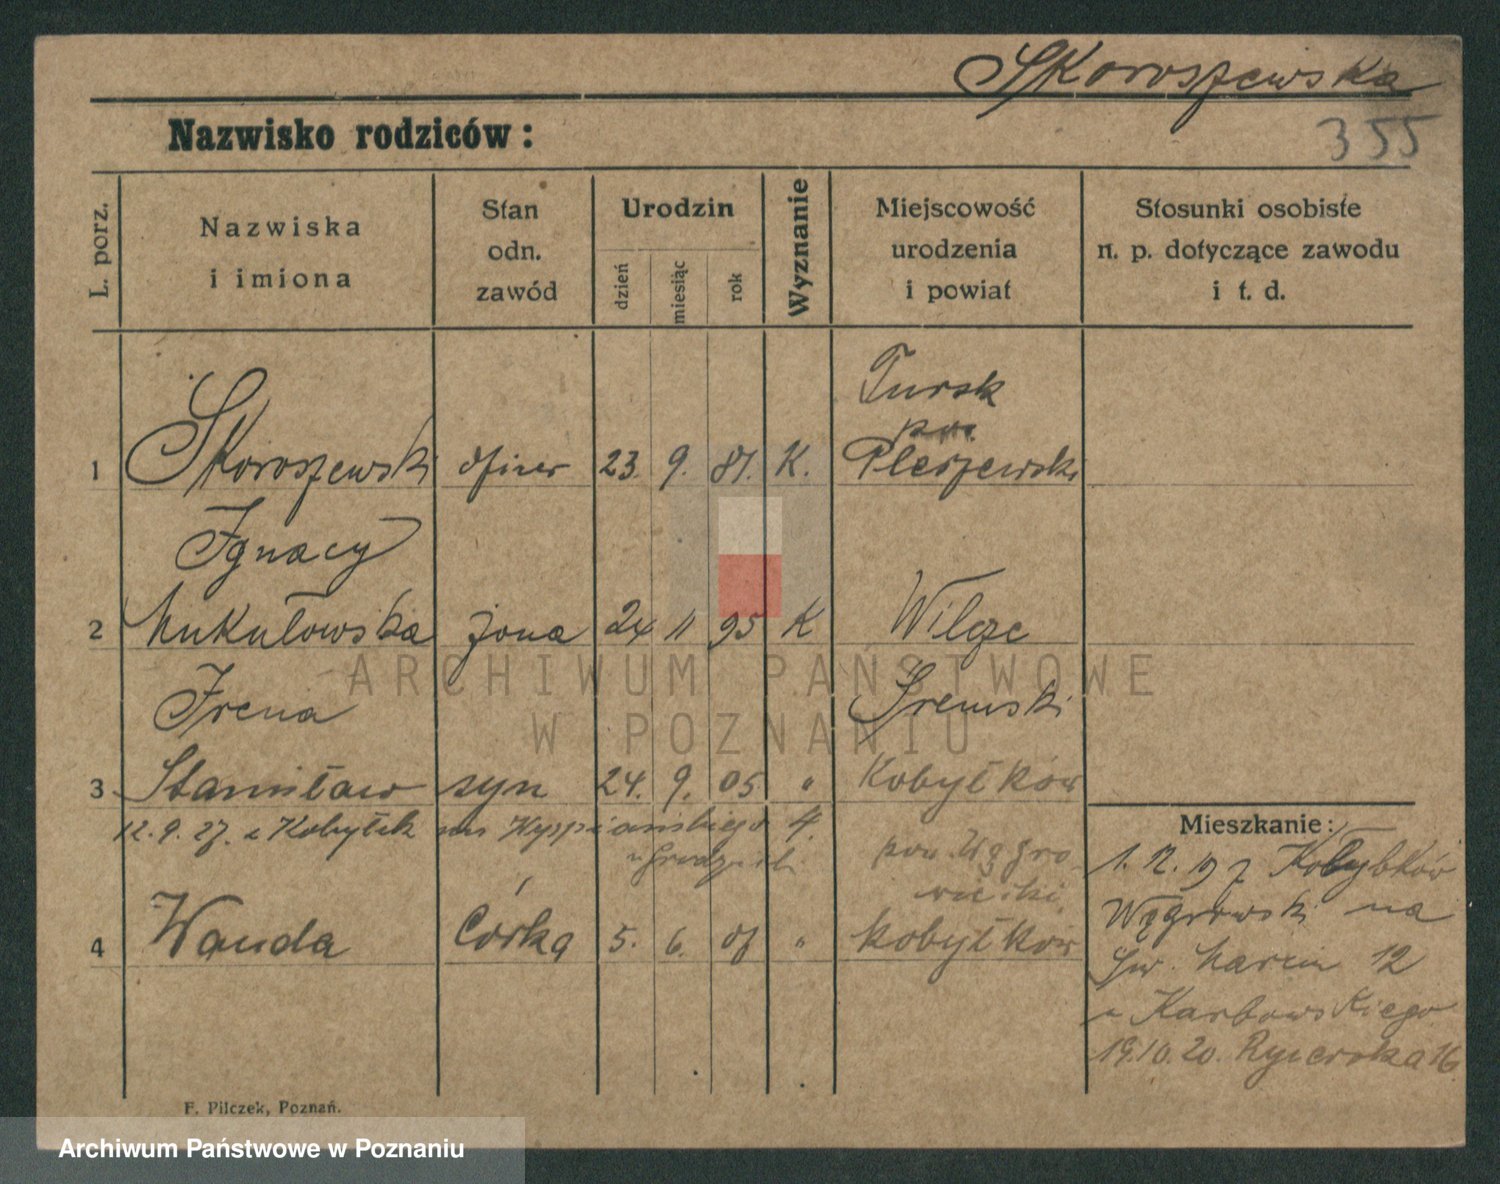 Skoroszewska
Nazwisko rodziców:
355
L. porz.
Nazwiska
i imiona
Stan
odn.
zawód
Urodzin
dzień
miesiąc
rok
Wyznanie
Miejscowość
urodzenia
i powiat
Stosunki osobiste
n. p. dotyczące zawodu
i t. d.
Tursk
pow.
1 Skoroszewski oficer 23. 9. 81. K. Pleszewski
Ignacy
2 Mukułowska żona 24 11 95 K Wilcze
Irena Śremski
3 Stanisław syn 24. 9. 05 " Kobyłków
12. 9. 27. z Kobyłek Wyspiańskiego 4.
pow. Wągro
wiecki
4 Wanda Córka 5. 6. " Kobyłków
Mieszkanie:
1. 12. 19 z Kobyłków
Wągrowski na
Św. Marcin 12
u Karbowskiego
19.10.20. Rycerska 16
F. Pilczek, Poznań.
ARCHIWUM PAŃSTWOWE
W POZNANIU
Archiwum Państwowe w Poznaniu